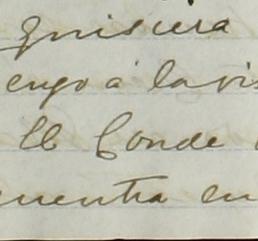 quisiera
engo á la vis
El Conde
cuentra en